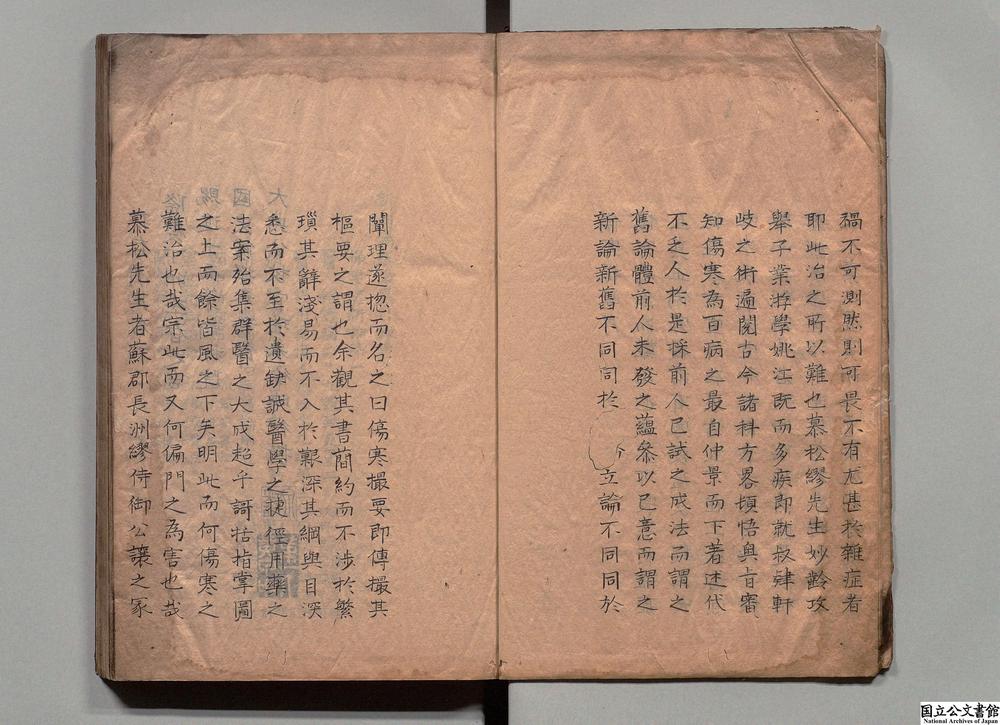 禍不可測然則可畏不有尤甚於雜症者
耶此治之所以難也慕松繆先生妙齡攻
舉子業游學姚江既而多疾即就叔肄軒
岐之術遍閱古今諸科方畧頓悟奥旨審
知傷寒為百病之最自仲景而下著述代
不乏人於是採前人已試之成法而謂之
舊論體前人未發之蘊叅以己意而謂之
新論新舊不同同於 立論不同同於
闡理遂揔而名之曰傷寒撮要即傳撮其
樞要之謂也余觀其書蕳約而不涉於繁
瑣其辭淺易而不入於艱深其綱與目深
悉而不至於遺缺誠醫學之捷徑用藥之
法案殆集群醫之大成超乎謌括指掌圖
之上而餘皆風之下矣明此而何傷寒之
難治也哉宗此而又何偏門之為害也哉
慕松先生者蘇郡長洲繆侍御公讓之冢
国立公文書館
National Archives of Japan